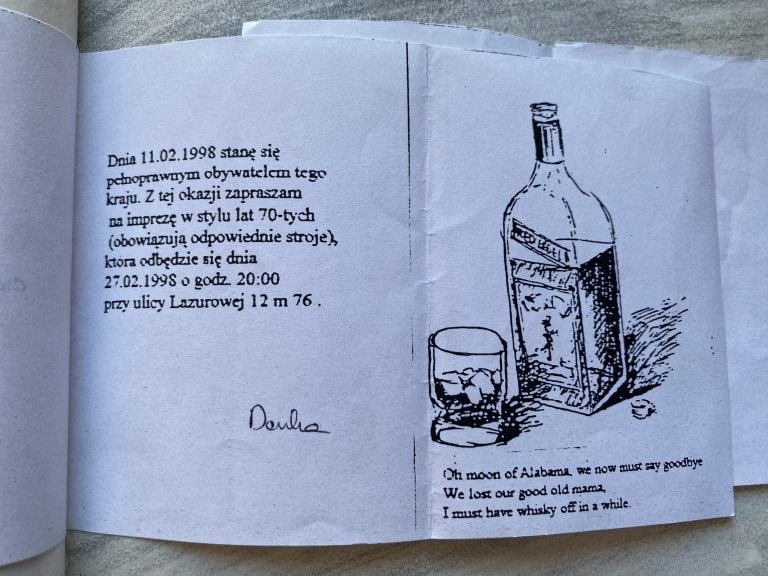 Dnia 11.02.1998 stanę się
pełnoprawnym obywatelem tego
kraju. Z tej okazji zapraszam
na imprezę w stylu lat 70-tych
(obowiązują odpowiednie stroje),
która odbędzie się dnia
27.02.1998 o godz. 20:00
przy ulicy Lazurowej 12 m 76 .
Danka
Oh moon of Alabama, we now must say goodbye
We lost our good old mama,
I must have whisky off in a while.